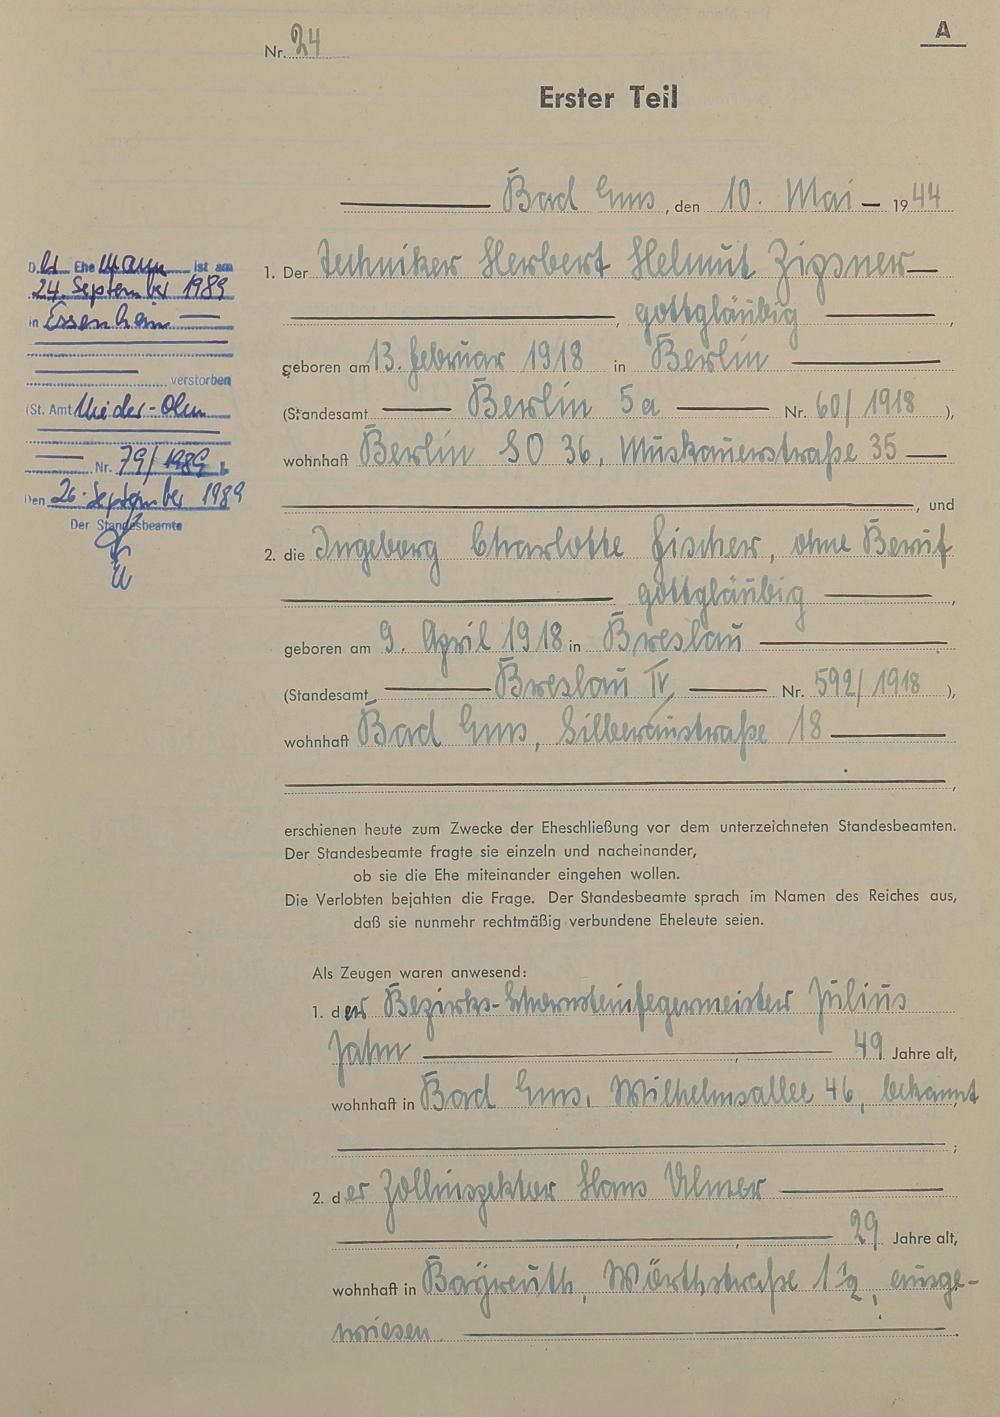 A
Nr. 24
Erster Teil
Bad Ems, den 10. Mai 1944
1. Der Techniker Herbert Helmut Zipsner
, gottgläubig ,
geboren am 13. Februar 1918 in Berlin
(Standesamt Berlin 5a Nr. 60/1918 ),
wohnhaft Berlin SO 36, Muskauerstraße 35
, und
2. die Ingeborg Charlotte Fischer, ohne Beruf
gottgläubig ,
geboren am 9. April 1918 in Breslau
(Standesamt Breslau IV Nr. 592/1918 ),
wohnhaft Bad Ems, Silberaustraße 18
,
erschienen heute zum Zwecke der Eheschließung vor dem unterzeichneten Standesbeamten.
Der Standesbeamte fragte sie einzeln und nacheinander,
ob sie die Ehe miteinander eingehen wollen.
Die Verlobten bejahten die Frage. Der Standesbeamte sprach im Namen des Reiches aus,
daß sie nunmehr rechtmäßig verbundene Eheleute seien.
Als Zeugen waren anwesend:
1. der Bezirks-Schornsteinfegermeister Julius
Jahn , 49 Jahre alt,
wohnhaft in Bad Ems, Wilhelmsallee 46, bekannt
;
2. der Zollinspektor Hans Ulmer
, 29 Jahre alt,
wohnhaft in Bayreuth, Wörthstraße 1½, ausge-
wiesen.
D. Ehemann ist am
24. September 1989
in Essenheim
verstorben
(St. Amt Nieder-Olm
Nr. 79/1989 ).
Den 26. September 1989
Der Standesbeamte